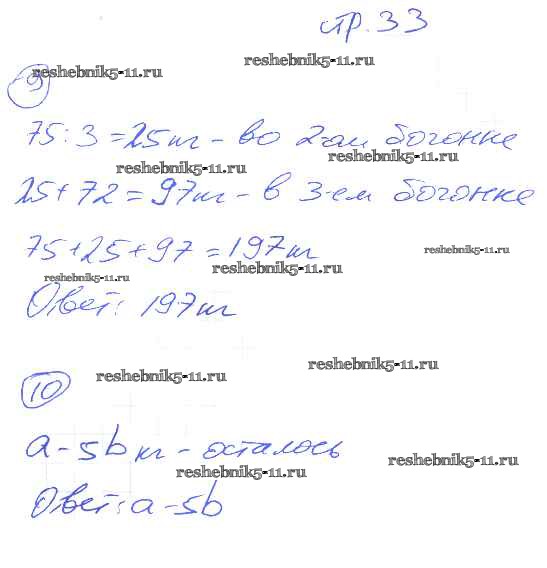 стр. 33
9
reshebnik5-11.ru
reshebnik5-11.ru
75 : 3 = 25 кг - во 2-ом бочонке
reshebnik5-11.ru
reshebnik5-11.ru
25 + 72 = 97 кг - в 3-ем бочонке
75 + 25 + 97 = 197 кг
reshebnik5-11.ru
reshebnik5-11.ru
reshebnik5-11.ru
Ответ: 197 кг
10
reshebnik5-11.ru
reshebnik5-11.ru
a - 5b кг - осталось
reshebnik5-11.ru
reshebnik5-11.ru
Ответ: a - 5b